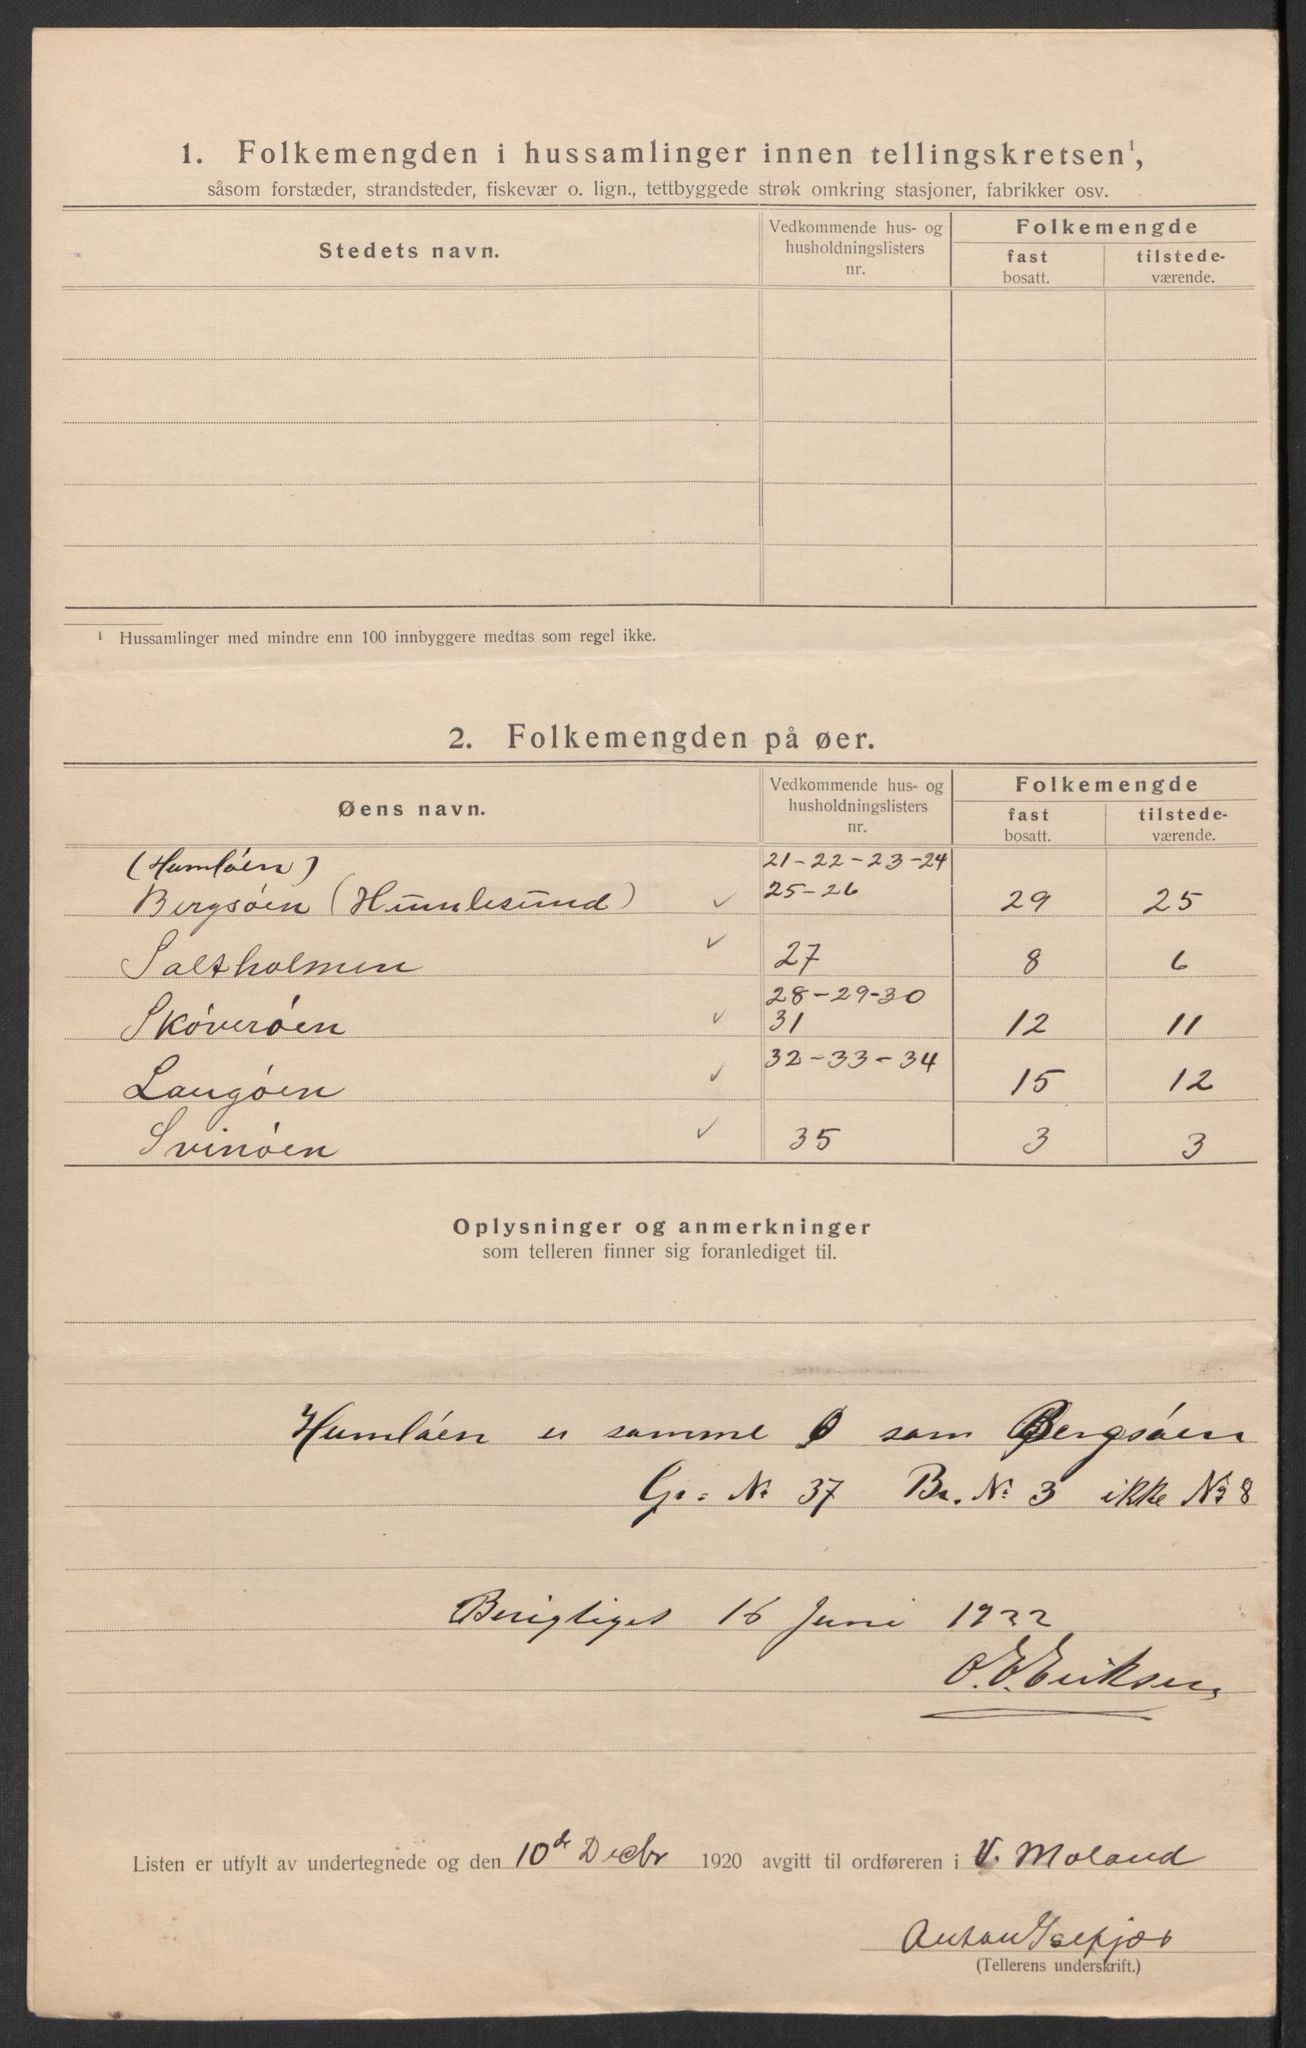 1. Folkemengden i hussamlinger innen tellingskretsen¹,
såsom forstæder, strandsteder, fiskevær o. lign., tettbyggede strøk omkring stasjoner, fabrikker osv.
Stedets navn. Vedkommende hus- og husholdningslisters nr. Folkemengde
fast bosatt. tilstede-værende.
¹ Hussamlinger med mindre enn 100 innbyggere medtas som regel ikke.
2. Folkemengden på øer.
Øens navn. Vedkommende hus- og husholdningslisters nr. Folkemengde
fast bosatt. tilstede-værende.
(Humløen) 21-22-23-24
Bergsøen (Humlesund) ✓ 25-26 29 25
Saltholmen ✓ 27 8 6
28-29-30
Skøverøen ✓ 31 12 11
32-33-34
Langøen ✓ 15 12
Svinøen ✓ 35 3 3
Oplysninger og anmerkninger
som telleren finner sig foranlediget til.
Humløen er samme Ø som Bergsøen
Gr. No 37 Br. No 3 ikke No 8
Berigtiget 16 Juni 1922
O. E. Eriksen
Listen er utfylt av undertegnede og den 10de Decbr 1920 avgitt til ordføreren i V. Moland
Anton Isefjær
(Tellerens underskrift.)